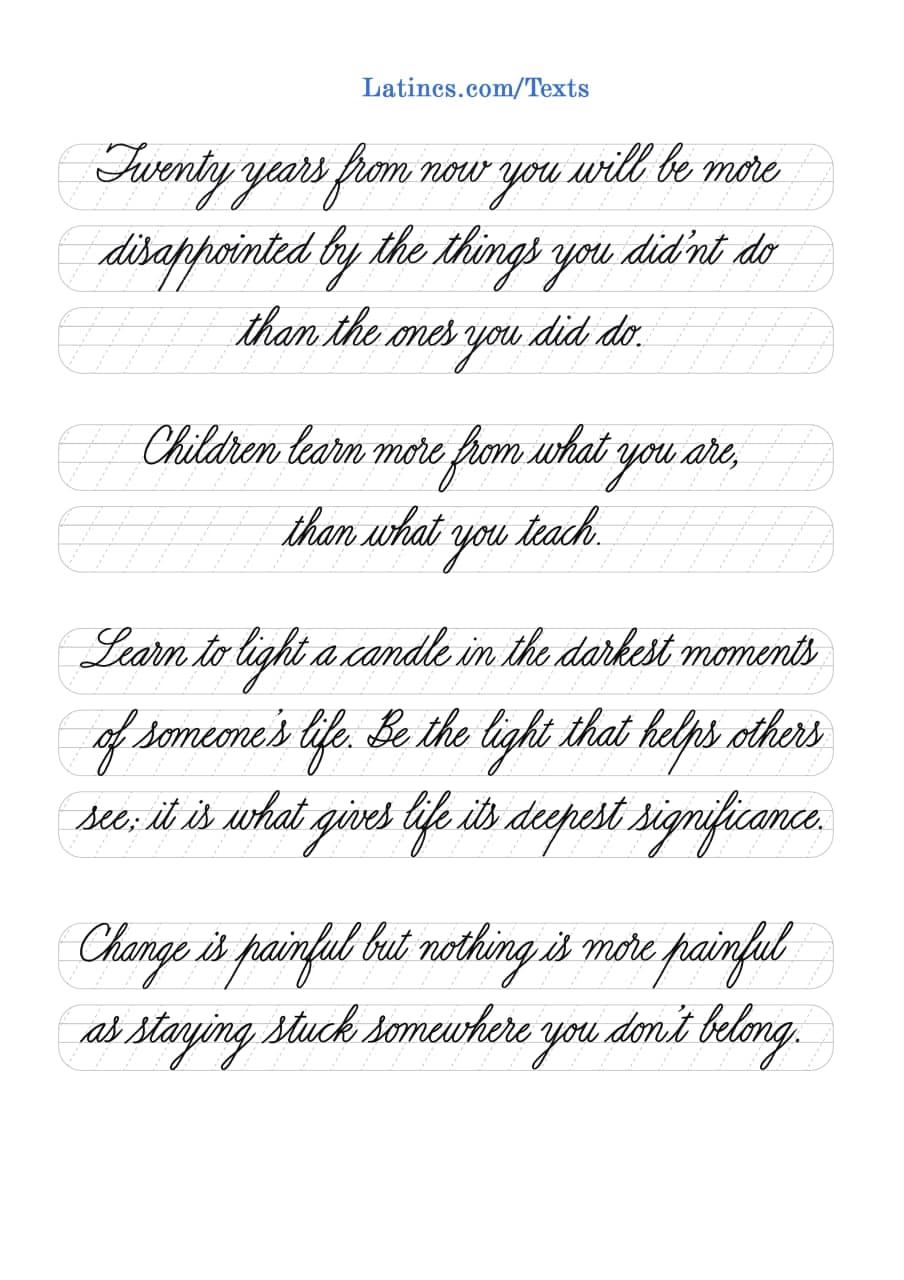 Latincs.com/Texts
Twenty years from now you will be more
disappointed by the things you did'nt do
than the ones you did do.
Children learn more from what you are,
than what you teach.
Learn to light a candle in the darkest moments
of someone's life. Be the light that helps others
see; it is what gives life its deepest significance.
Change is painful but nothing is more painful
as staying stuck somewhere you don't belong.